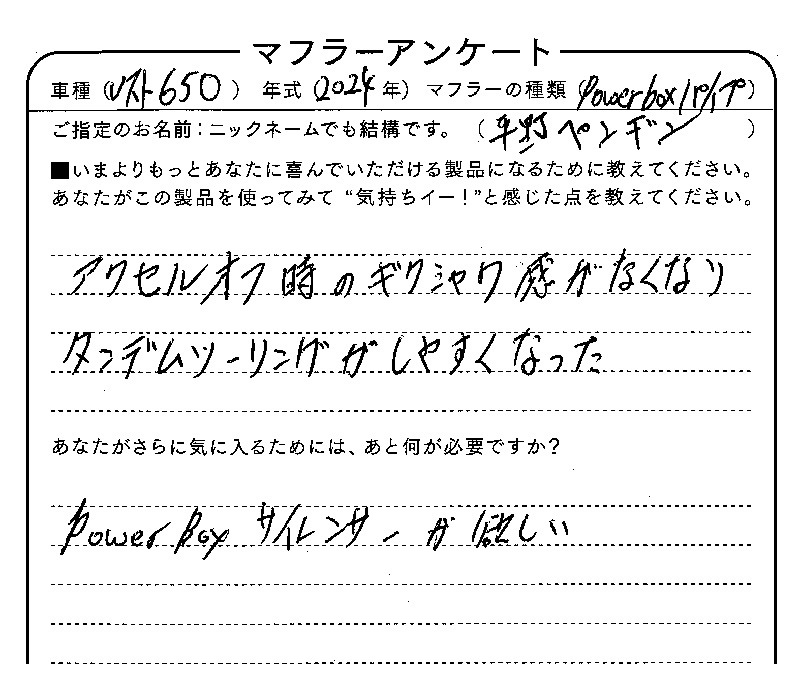 マフラーアンケート
車種（Vスト650）年式（2024年）マフラーの種類（Powerbox/パイプ）
ご指定のお名前：ニックネームでも結構です。（平野ペンギン）
■いまよりもっとあなたに喜んでいただける製品になるために教えてください。
あなたがこの製品を使ってみて“気持ちイー！”と感じた点を教えてください。
アクセルオフ時のギクシャク感がなくなり
タンデムツーリングがしやすくなった
あなたがさらに気に入るためには、あと何が必要ですか？
Power Box サイレンサーが欲しい